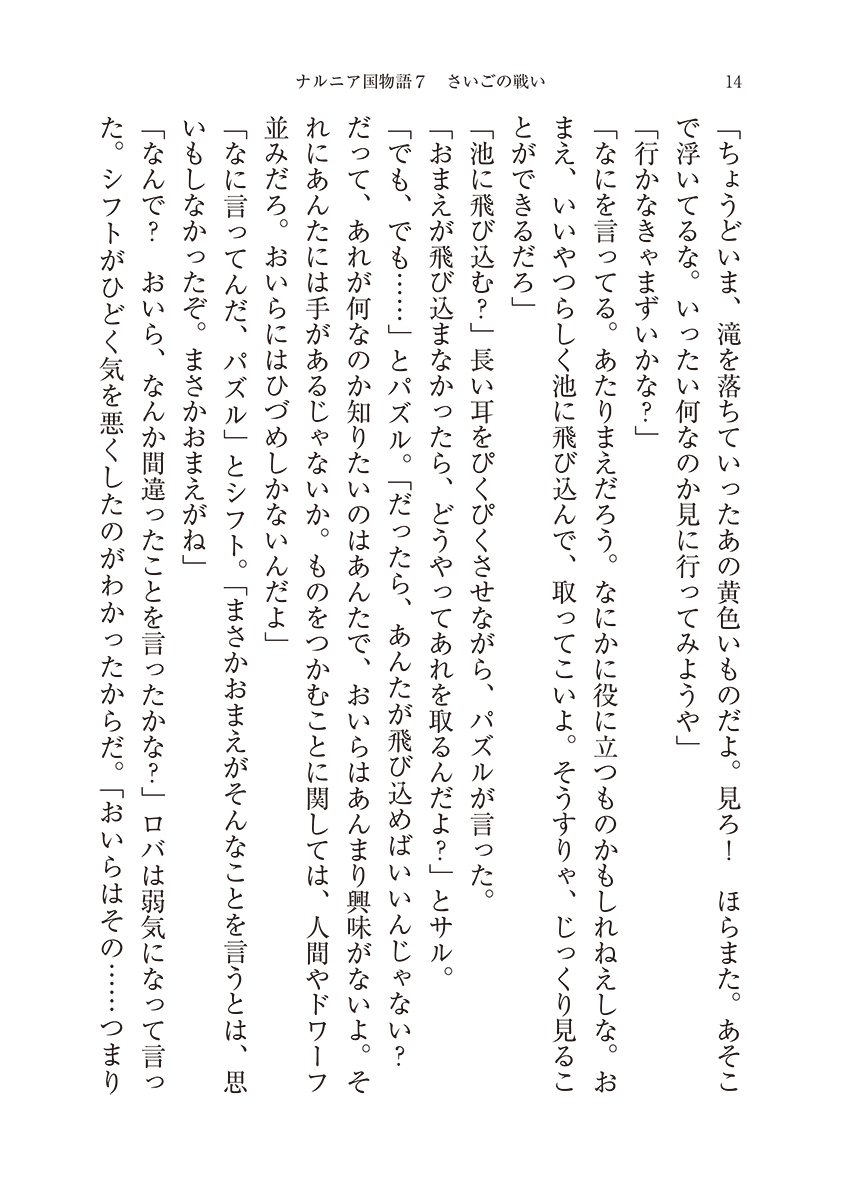 ナルニア国物語7　さいごの戦い　14
「ちょうどいま、滝を落ちていったあの黄色いものだよ。見ろ！　ほらまた。あそこ
で浮いてるな。いったい何なのか見に行ってみようや」
「行かなきゃまずいかな？」
「なにを言ってる。あたりまえだろう。なにかに役に立つものかもしれねえしな。お
まえ、いいやつらしく池に飛び込んで、取ってこいよ。そうすりゃ、じっくり見るこ
とができるだろ」
「池に飛び込む？」長い耳をぴくぴくさせながら、パズルが言った。
「おまえが飛び込まなかったら、どうやってあれを取るんだよ？」とサル。
「でも、でも……」とパズル。「だったら、あんたが飛び込めばいいんじゃない？
だって、あれが何なのか知りたいのはあんたで、おいらはあんまり興味がないよ。そ
れにあんたには手があるじゃないか。ものをつかむことに関しては、人間やドワーフ
並みだろ。おいらにはひづめしかないんだよ」
「なに言ってんだ、パズル」とシフト。「まさかおまえがそんなことを言うとは、思
いもしなかったぞ。まさかおまえがね」
「なんで？　おいら、なんか間違ったことを言ったかな？」ロバは弱気になって言っ
た。シフトがひどく気を悪くしたのがわかったからだ。「おいらはその……つまり